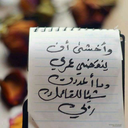 وأخشى أن
ينقضي عمري
وما أعددت
شيئا للقائك
ربي